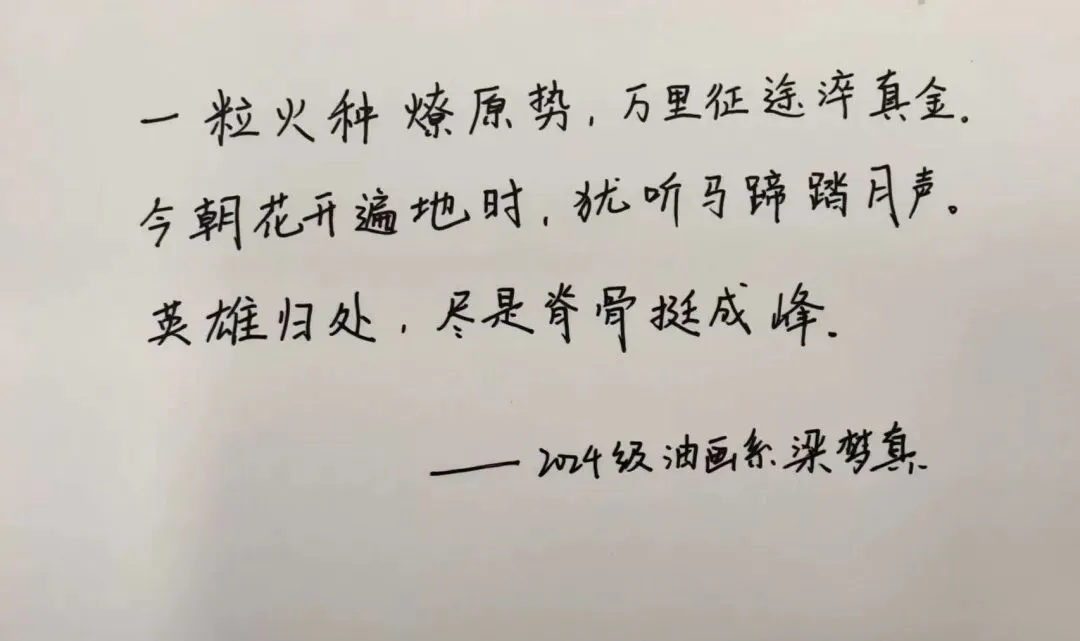 一粒火种燎原势，万里征途淬真金.
今朝花开遍地时，犹听马蹄踏月声。
英雄归处，尽是脊骨挺成峰.
——2024级油画系梁梦真.